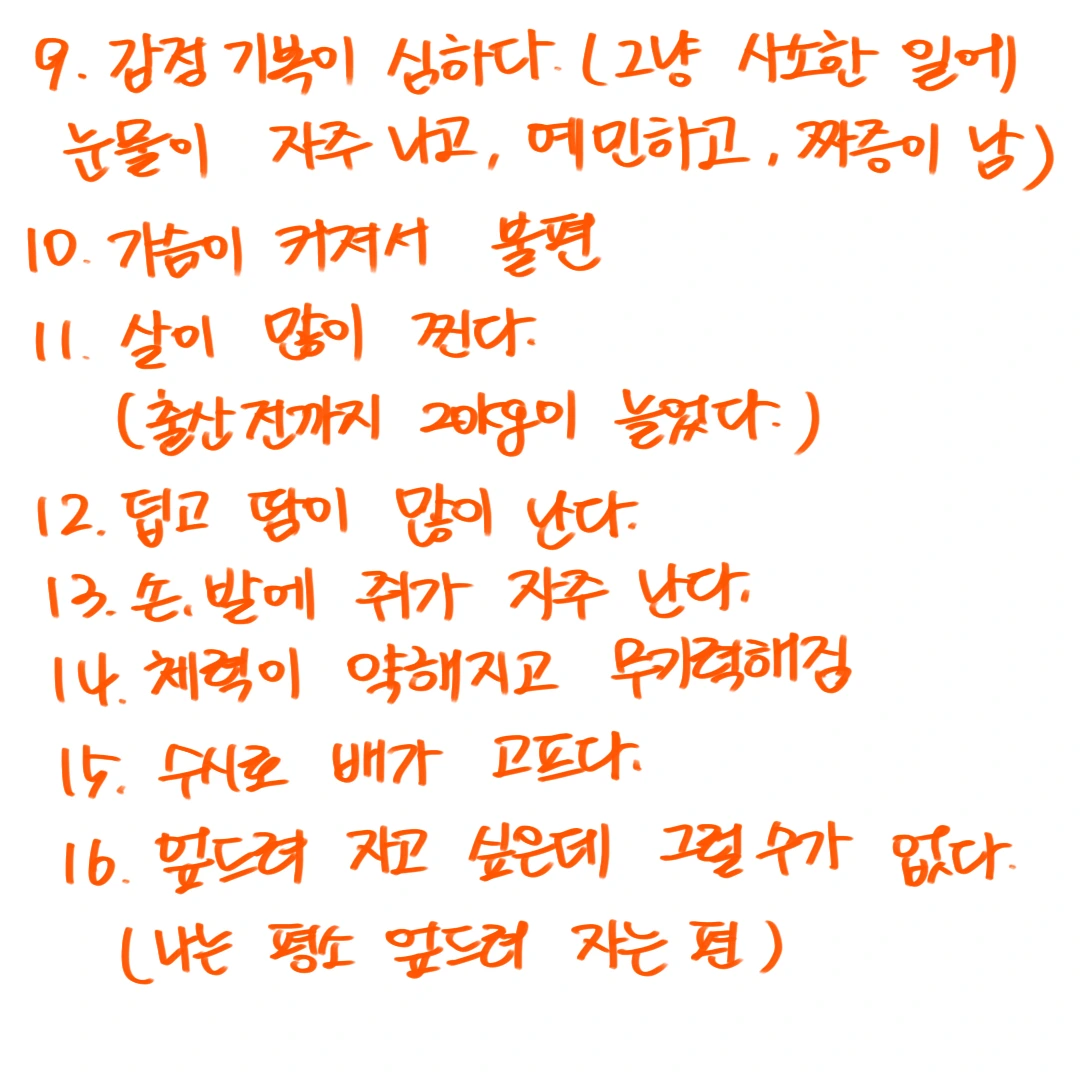 9. 감정 기복이 심하다. (그냥 사소한 일에
눈물이 자주 나고, 예민하고, 짜증이 남)
10. 가슴이 커져서 불편
11. 살이 많이 찐다.
(출산 전까지 20kg이 늘었다.)
12. 덥고 땀이 많이 난다.
13. 손.발에 쥐가 자주 난다.
14. 체력이 약해지고 무기력해짐
15. 수시로 배가 고프다.
16. 엎드려 자고 싶은데 그럴 수가 없다.
(나는 평소 엎드려 자는 편)